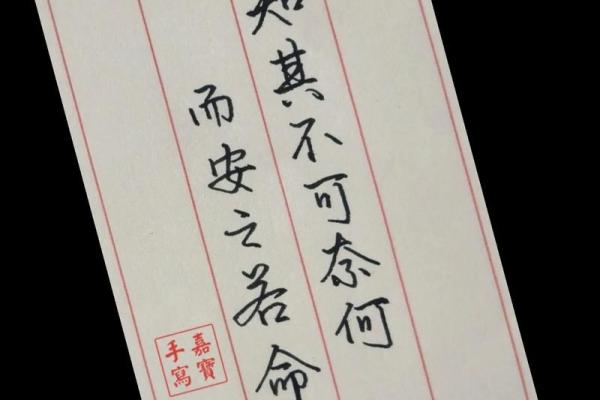 知其不可奈何
而安之若命
嘉寶
手寫